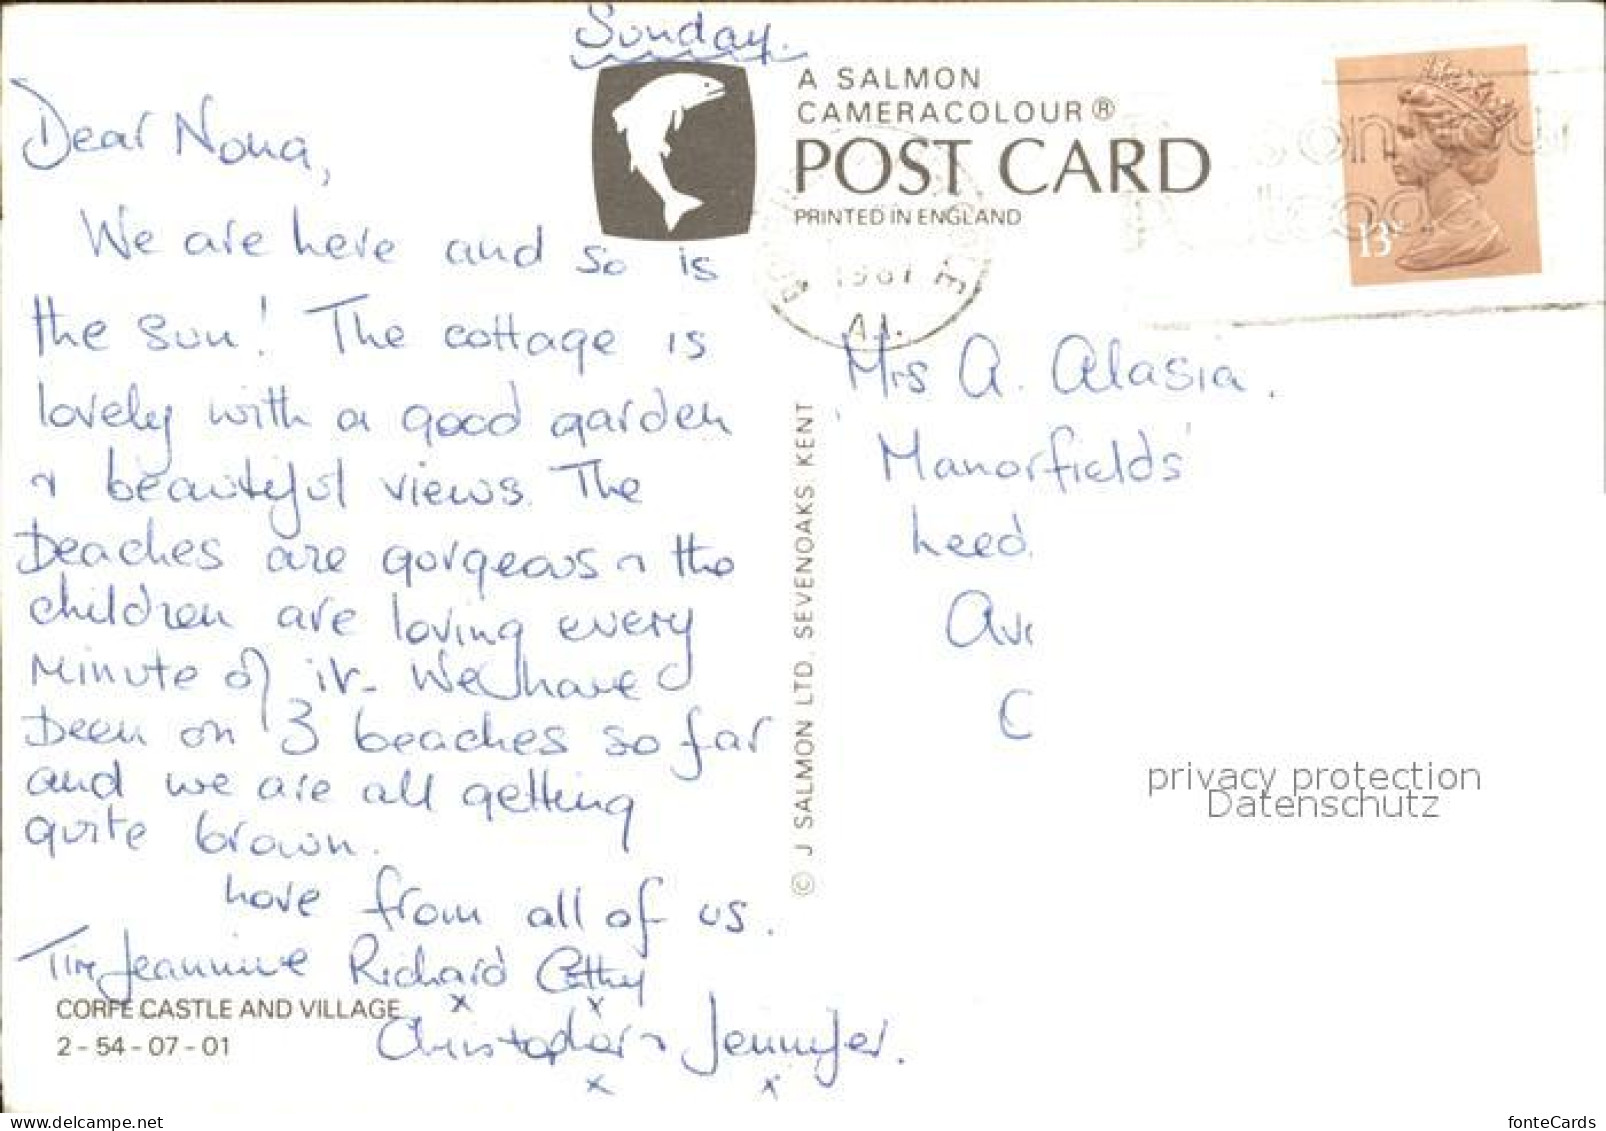 Sunday.
Dear Nona,
We are here and so is
the sun! The cottage is
lovely with a good garden
& beautiful views. The
beaches are gorgeous & the
children are loving every
minute of it. We have
been on 3 beaches so far
and we are all getting
quite brown.
Love from all of us.
Tim Jeannine Richard Cathy
x x
Christopher & Jennifer.
x x
CORFE CASTLE AND VILLAGE
2 - 54 - 07 - 01
A SALMON
CAMERACOLOUR®
POST CARD
PRINTED IN ENGLAND
© J SALMON LTD. SEVENOAKS KENT
13P
1981
A1.
Mrs A. Alasia.
'Manorfields'
Leed
Av
C
privacy protection
Datenschutz
https://www.delcampe.net
fonteCards